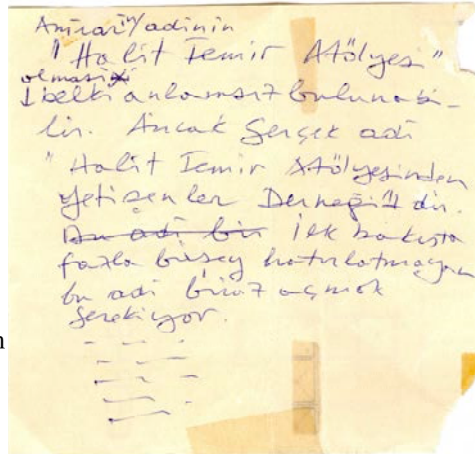 Anıların/adinin
"Halit Temir Atölyesi"
olması
belki anlamsız buluna bi-
lir. Ancak Gerçek adi
"Halit Temir Atölyesinden
yetişenler Derneği" dir.
Bu adi bir ilk bakışta
fazla bişey hatırlatmayan
bu adi biraz açmak
Gerekiyor.
n